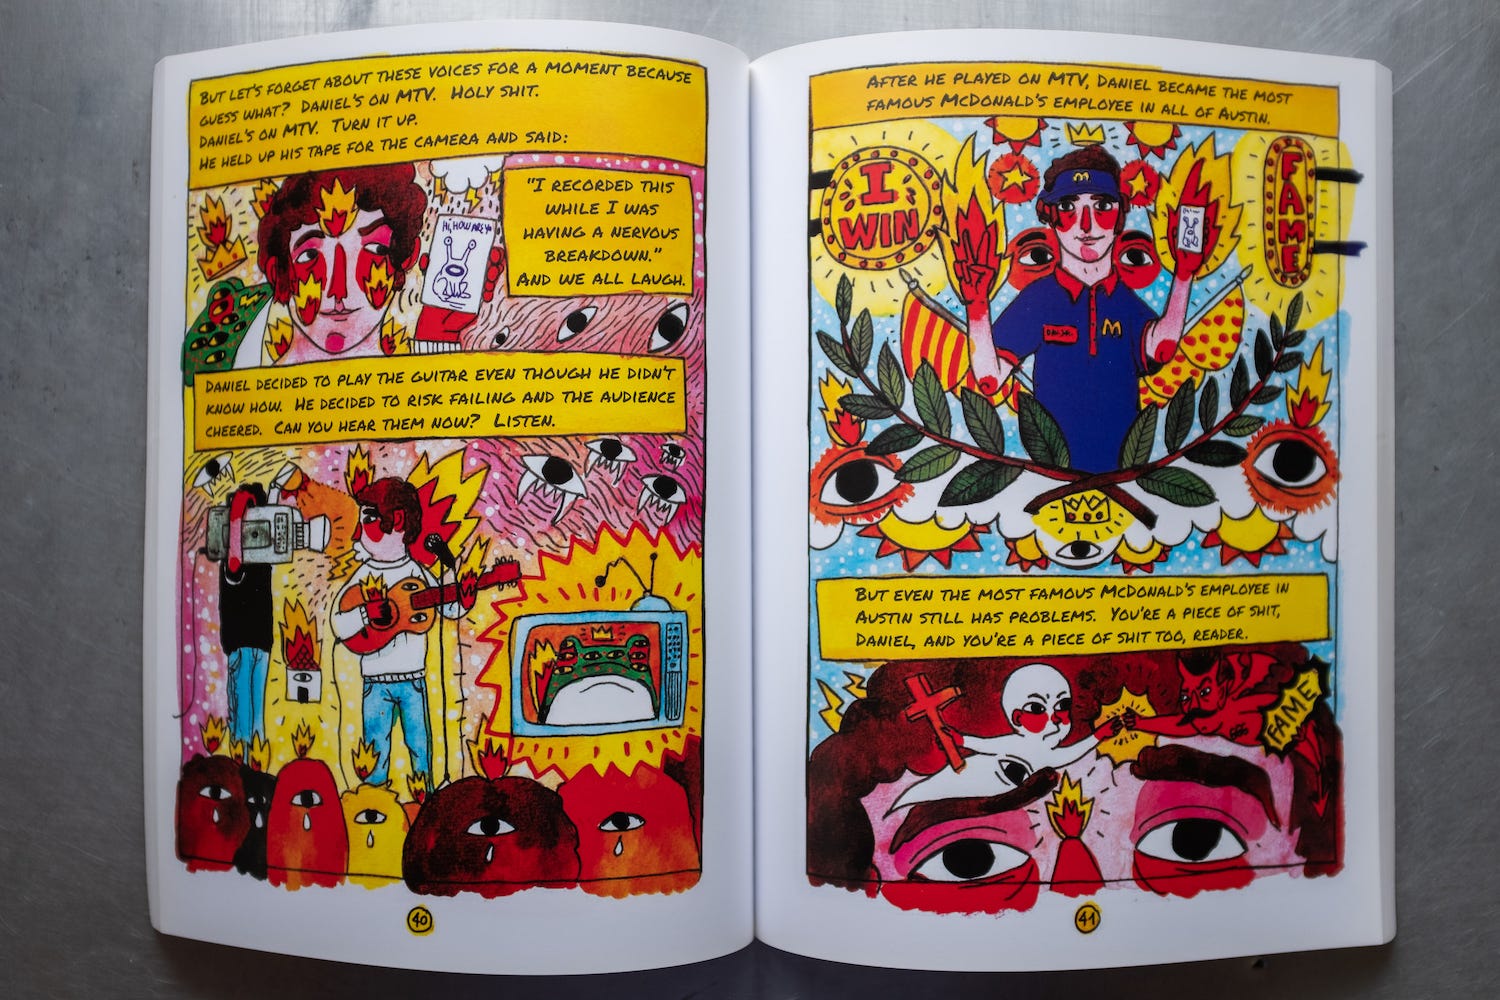 BUT LET'S FORGET ABOUT THESE VOICES FOR A MOMENT BECAUSE
GUESS WHAT? DANIEL'S ON MTV. HOLY SHIT.
DANIEL'S ON MTV. TURN IT UP.
HE HELD UP HIS TAPE FOR THE CAMERA AND SAID:
"I RECORDED THIS
WHILE I WAS
HAVING A NERVOUS
BREAKDOWN."
AND WE ALL LAUGH.
HI, HOW ARE YO
DANIEL DECIDED TO PLAY THE GUITAR EVEN THOUGH HE DIDN'T
KNOW HOW. HE DECIDED TO RISK FAILING AND THE AUDIENCE
CHEERED. CAN YOU HEAR THEM NOW? LISTEN.
40
AFTER HE PLAYED ON MTV, DANIEL BECAME THE MOST
FAMOUS MCDONALD'S EMPLOYEE IN ALL OF AUSTIN.
I
WIN
FAME
M
M
BUT EVEN THE MOST FAMOUS MCDONALD'S EMPLOYEE IN
AUSTIN STILL HAS PROBLEMS. YOU'RE A PIECE OF SHIT,
DANIEL, AND YOU'RE A PIECE OF SHIT TOO, READER.
FAME
41